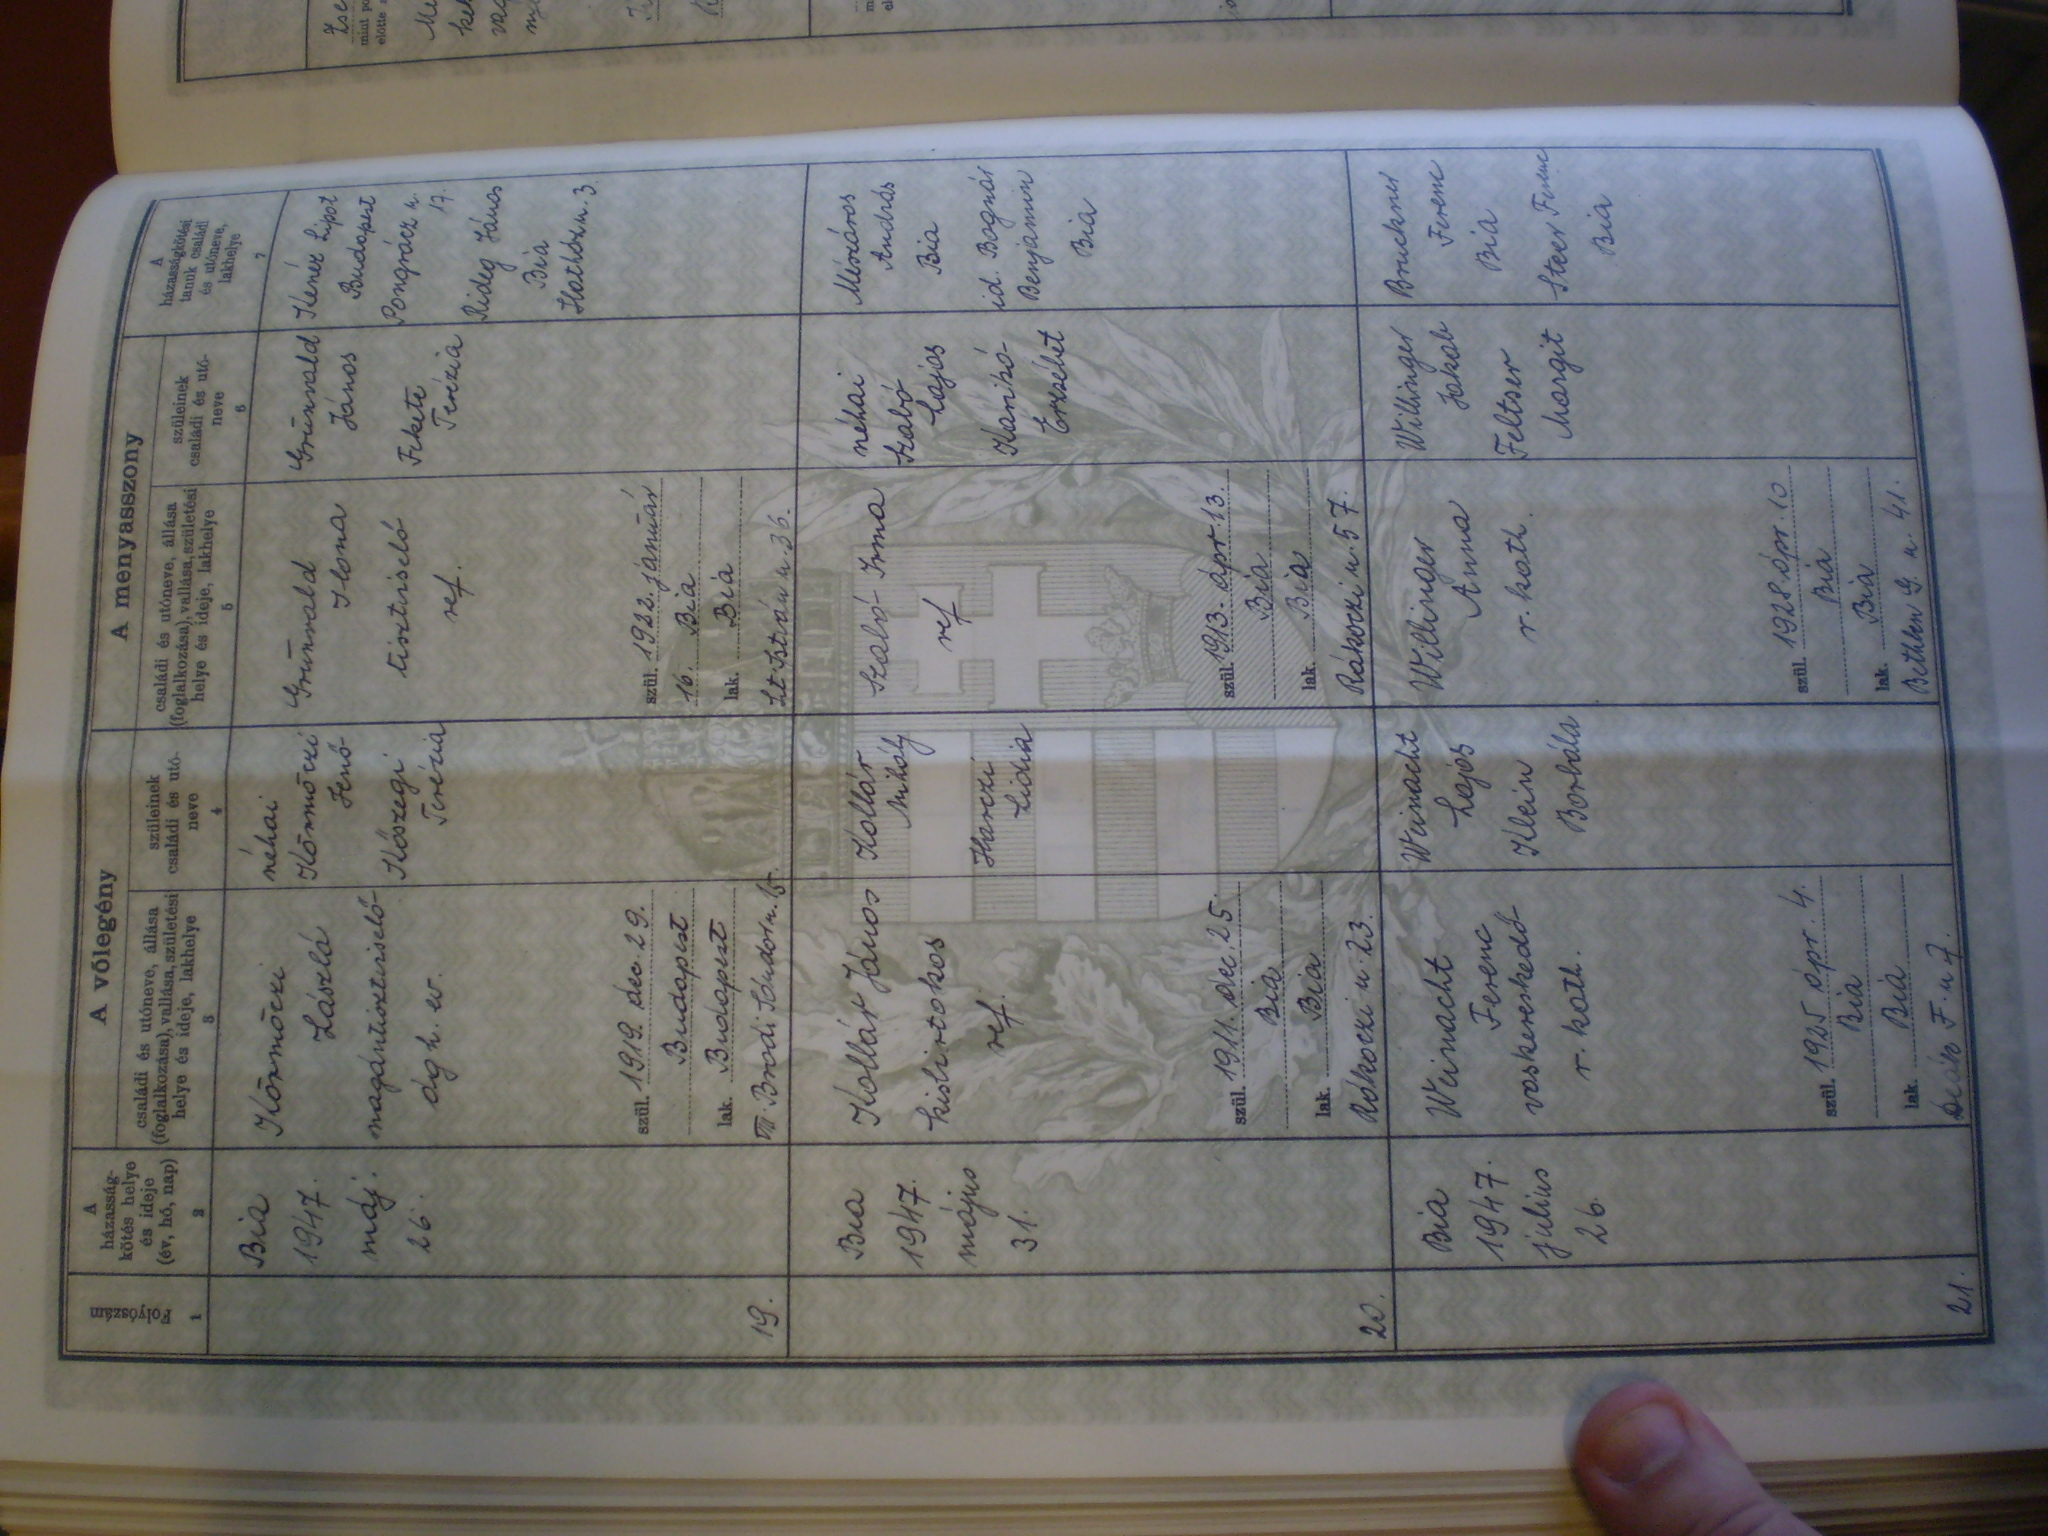 A völegény
A menyasszony
Folyószám
A
házasság-
kötés helye
és ideje
(év, hó, nap)
családi és utóneve, állása
(foglalkozása), vallása, születési
helye és ideje, lakhelye
szüleinek
családi és utó-
neve
családi és utóneve, állása
(foglalkozása), vallása, születési
helye és ideje, lakhelye
szüleinek
családi és utó-
neve
A
házasságkötési
tanuk családi
és utóneve,
lakhelye
1
2
3
4
5
6
7
19.
Bia
1947.
máj.
26.
Körmöczi
László
magántisztviselő
ág. h. ev.
szül. 1919. dec. 29.
Budapest
lak. Budapest
Bródi Sándor u.
néhai
Körmöczi
Jenő
Kőszegi
Terézia
Grünwald
Ilona
tisztviselő
ref.
szül. 1922. január
16. Bia
lak. Bia
Szt. István u. 36.
Grünwald
János
Fekete
Terézia
Lipot
Budapest
Pongrácz u.
17.
Rideg János
Bia
Horthy u. 3.
20.
Bia
1947.
május
31.
Kollár János
kisbirtokos
ref.
szül. 1911. dec. 25.
Bia
lak. Bia
Rákoczi u. 23.
Kollár
Mihály
Harczi
Lidia
Szabó Irma
ref
szül. 1913. ápr. 13.
Bia
lak. Bia
Rákoczi u. 57.
néhai
Szabó
Lajos
Karikó
Erzsébet
Mészáros
András
Bia
id. Bognár
Benjamin
Bia
21.
Bia
1947.
július
26.
Weinacht
Ferenc
vaskereskedő
r. kath.
szül. 1925 ápr. 4.
Bia
lak. Bia
Deák F. u 7.
Weinacht
Lajos
Klein
Borbála
Willinger
Anna
r. kath.
szül. 1928. ápr. 10
Bia
lak. Bia
Bethlen G. u. 41.
Willinger
Jakab
Feltser
Margit
Bruckner
Ferenc
Bia
Sterer Ferenc
Bia